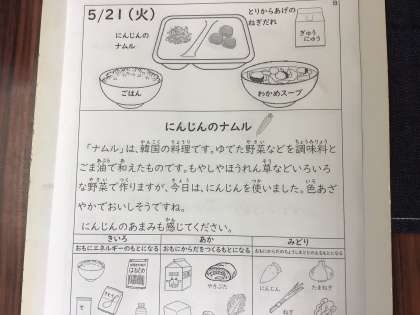 5/21(火)
にんじんの
ナムル
とりからあげの
ねぎだれ
ぎゅう
にゅう
ごはん
わかめスープ
にんじんのナムル
「ナムル」は、韓国の料理です。ゆでた野菜などを調味料と
ごま油で和えたものです。もやしやほうれん草などいろいろ
な野菜で作りますが、今日は、にんじんを使いました。色あざ
やかでおいしそうですね。
にんじんのあまみも感じてください。
きいろ
あか
みどり
おもにエネルギーのもとになる
おもにからだをつくるもとになる
おもにからだのちょうしをととのえるもとになる
やきぶた
にんじん
たまねぎ
ねぎ